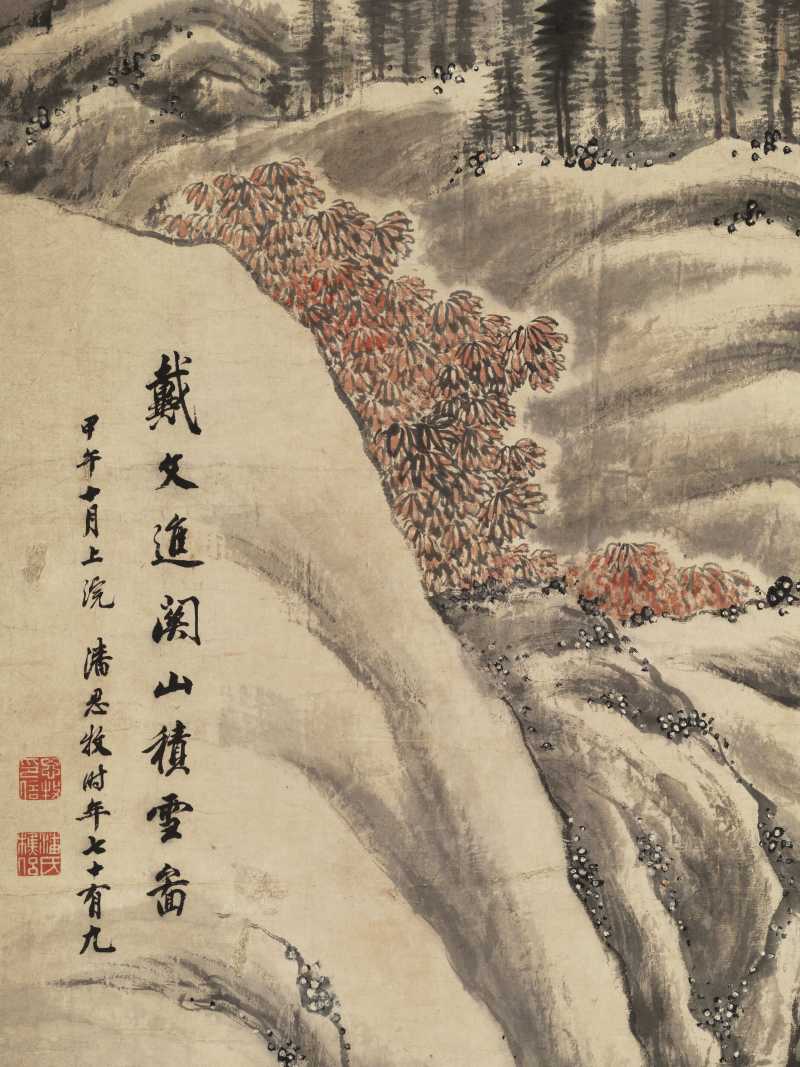 戴文進関山積雪啚
甲午十月上浣 潘思牧时年七十有九